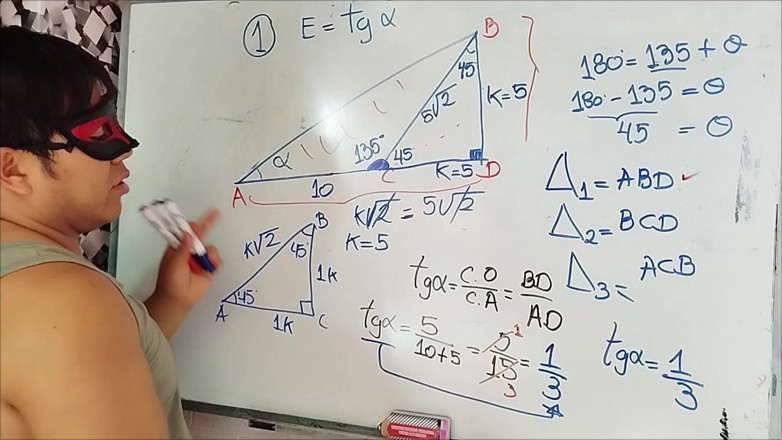 ① E = tgα
B
45
5√2
K=5
α
135°
45
A
10
C
K=5
D
K√2 = 5√2
K=5
B
K√2
45
1K
A
45°
1K
C
180° = 135 + θ
180° - 135 = θ
45 = θ
△1 = ABD ✓
△2 = BCD
△3 = ACB
tgα = C.O / C.A = BD / AD
tgα = 5 / 10+5 = 5 / 15 = 1 / 3
1
3
tgα = 1 / 3